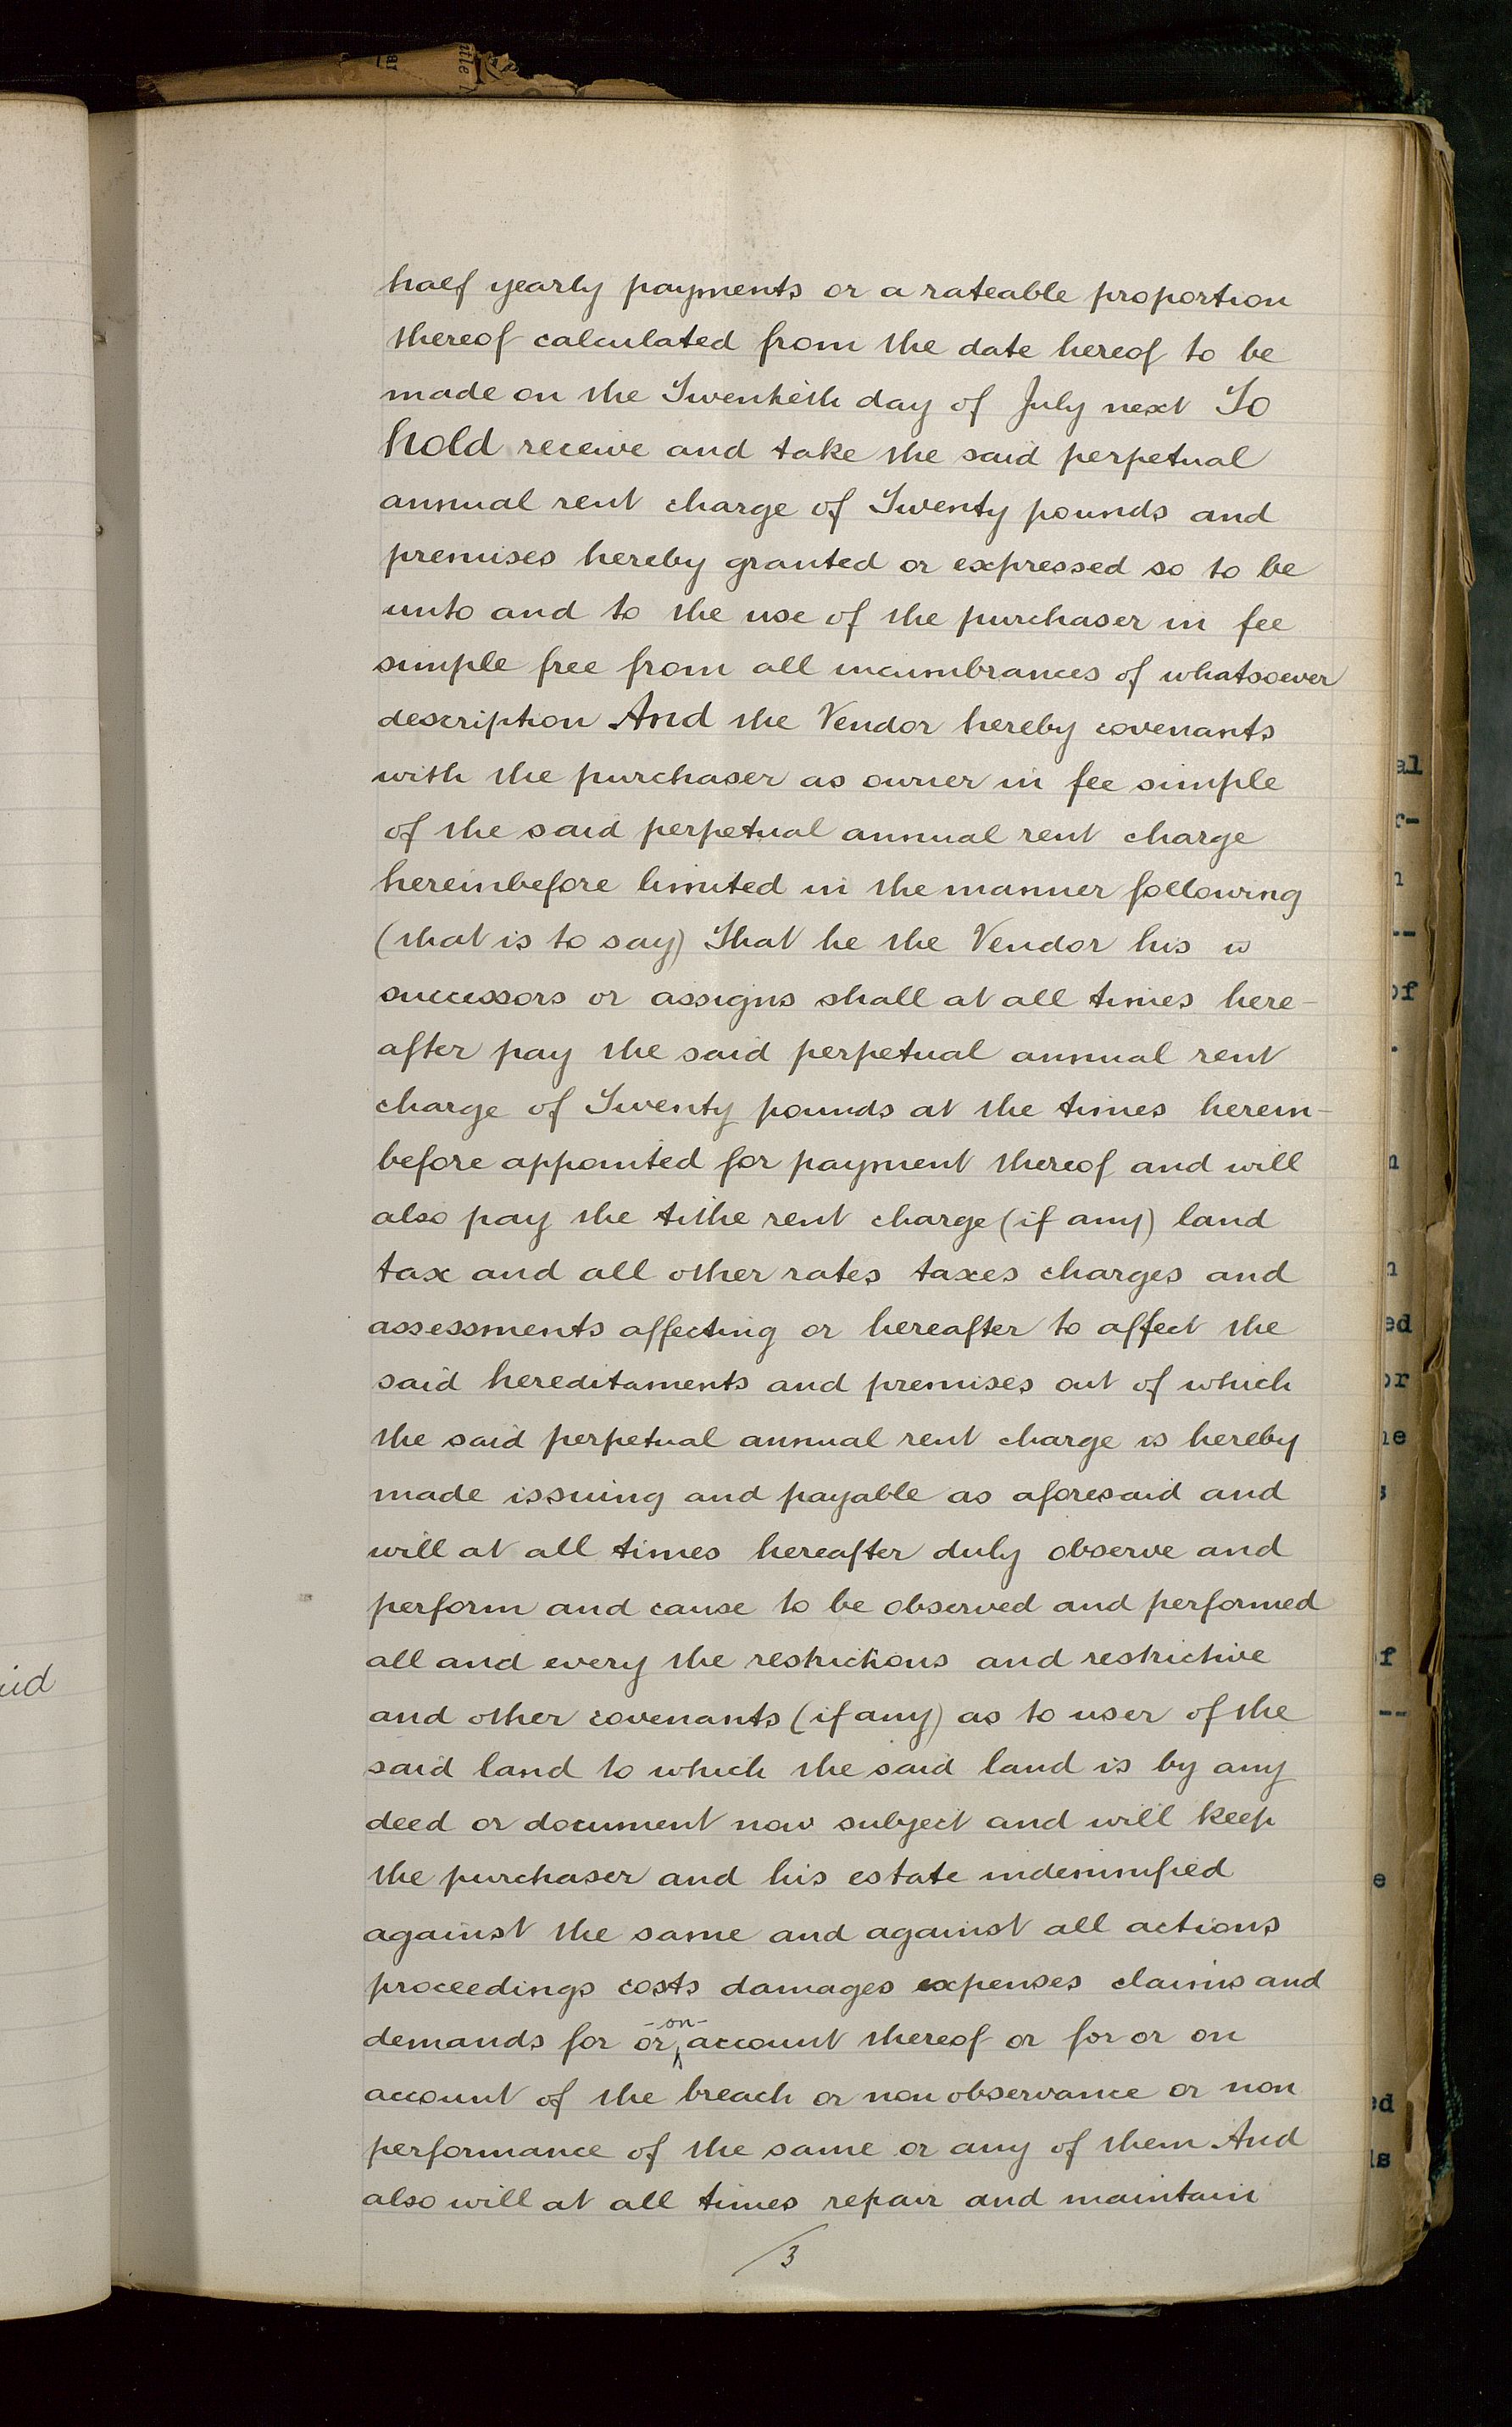 half yearly payments or a rateable proportion
thereof calculated from the date hereof to be
made on the Twentieth day of July next To
hold receive and take the said perpetual
annual rent charge of Twenty pounds and
premises hereby granted or expressed so to be
unto and to the use of the purchaser in fee
simple free from all incumbrances of whatsoever
description And the Vendor hereby covenants
with the purchaser as owner in fee simple
of the said perpetual annual rent charge
hereinbefore limited in the manner following
(that is to say) That he the Vendor his
successors or assigns shall at all times here-
after pay the said perpetual annual rent
charge of Twenty pounds at the times herein-
before appointed for payment thereof and will
also pay the tithe rent charge (if any) land
tax and all other rates taxes charges and
assessments affecting or hereafter to affect the
said hereditaments and premises out of which
the said perpetual annual rent charge is hereby
made issuing and payable as aforesaid and
will at all times hereafter duly observe and
perform and cause to be observed and performed
all and every the restrictions and restrictive
and other covenants (if any) as to user of the
said land to which the said land is by any
deed or document now subject and will keep
the purchaser and his estate indemnified
against the same and against all actions
proceedings costs damages expenses claims and
demands for or on account thereof or for or on
account of the breach or non observance or non
performance of the same or any of them And
also will at all times repair and maintain
3